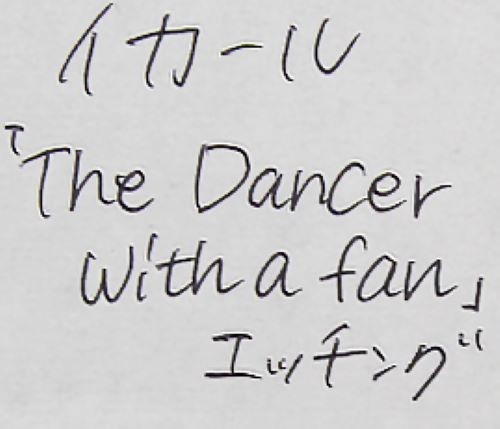 イカール
「The Dancer
with a fan」
エッチング